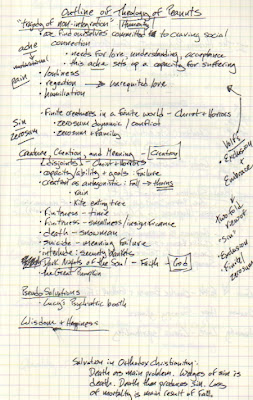 Outline of Theology of Peanuts
"tragedy of non-integration" Humans
• we find ourselves committed to craving social
connection
• needs for love, understanding, acceptance
• this ache sets up a capacity for suffering
ache
Pain
• loneliness
• rejection → unrequited love
• humiliation
Sin
zerosum
• Finite creatures in a finite world - Christ + Horrors
• zerosum dynamic / conflict
• zerosum + family
Creature, Creation, and Meaning - Creation
disjoints - Christ + Horrors
• capacity/ability + goals - failure
• creation as antagonistic: Fall → Horrors
• rain
• Kite eating tree
• Finitness - time
• Finitness - smallness/insignificance
• death - snowman
• suicide - meaning failure
• interlude: security blankets
Dark Nights of the Soul - Faith - God
the Great Pumpkin
Volf's
• Exclusion
+
Embrace
Twofold
"Sin":
• Exclusion
• Finite/
zerosum
Pseudo Solutions
• Lucy's Psychiatric booth
Wisdom + Happiness
Salvation in Orthodox Christianity:
Death as main problem. Wages of sin is
death. Death then produces Sin. Loss
of mortality is main result of Fall.